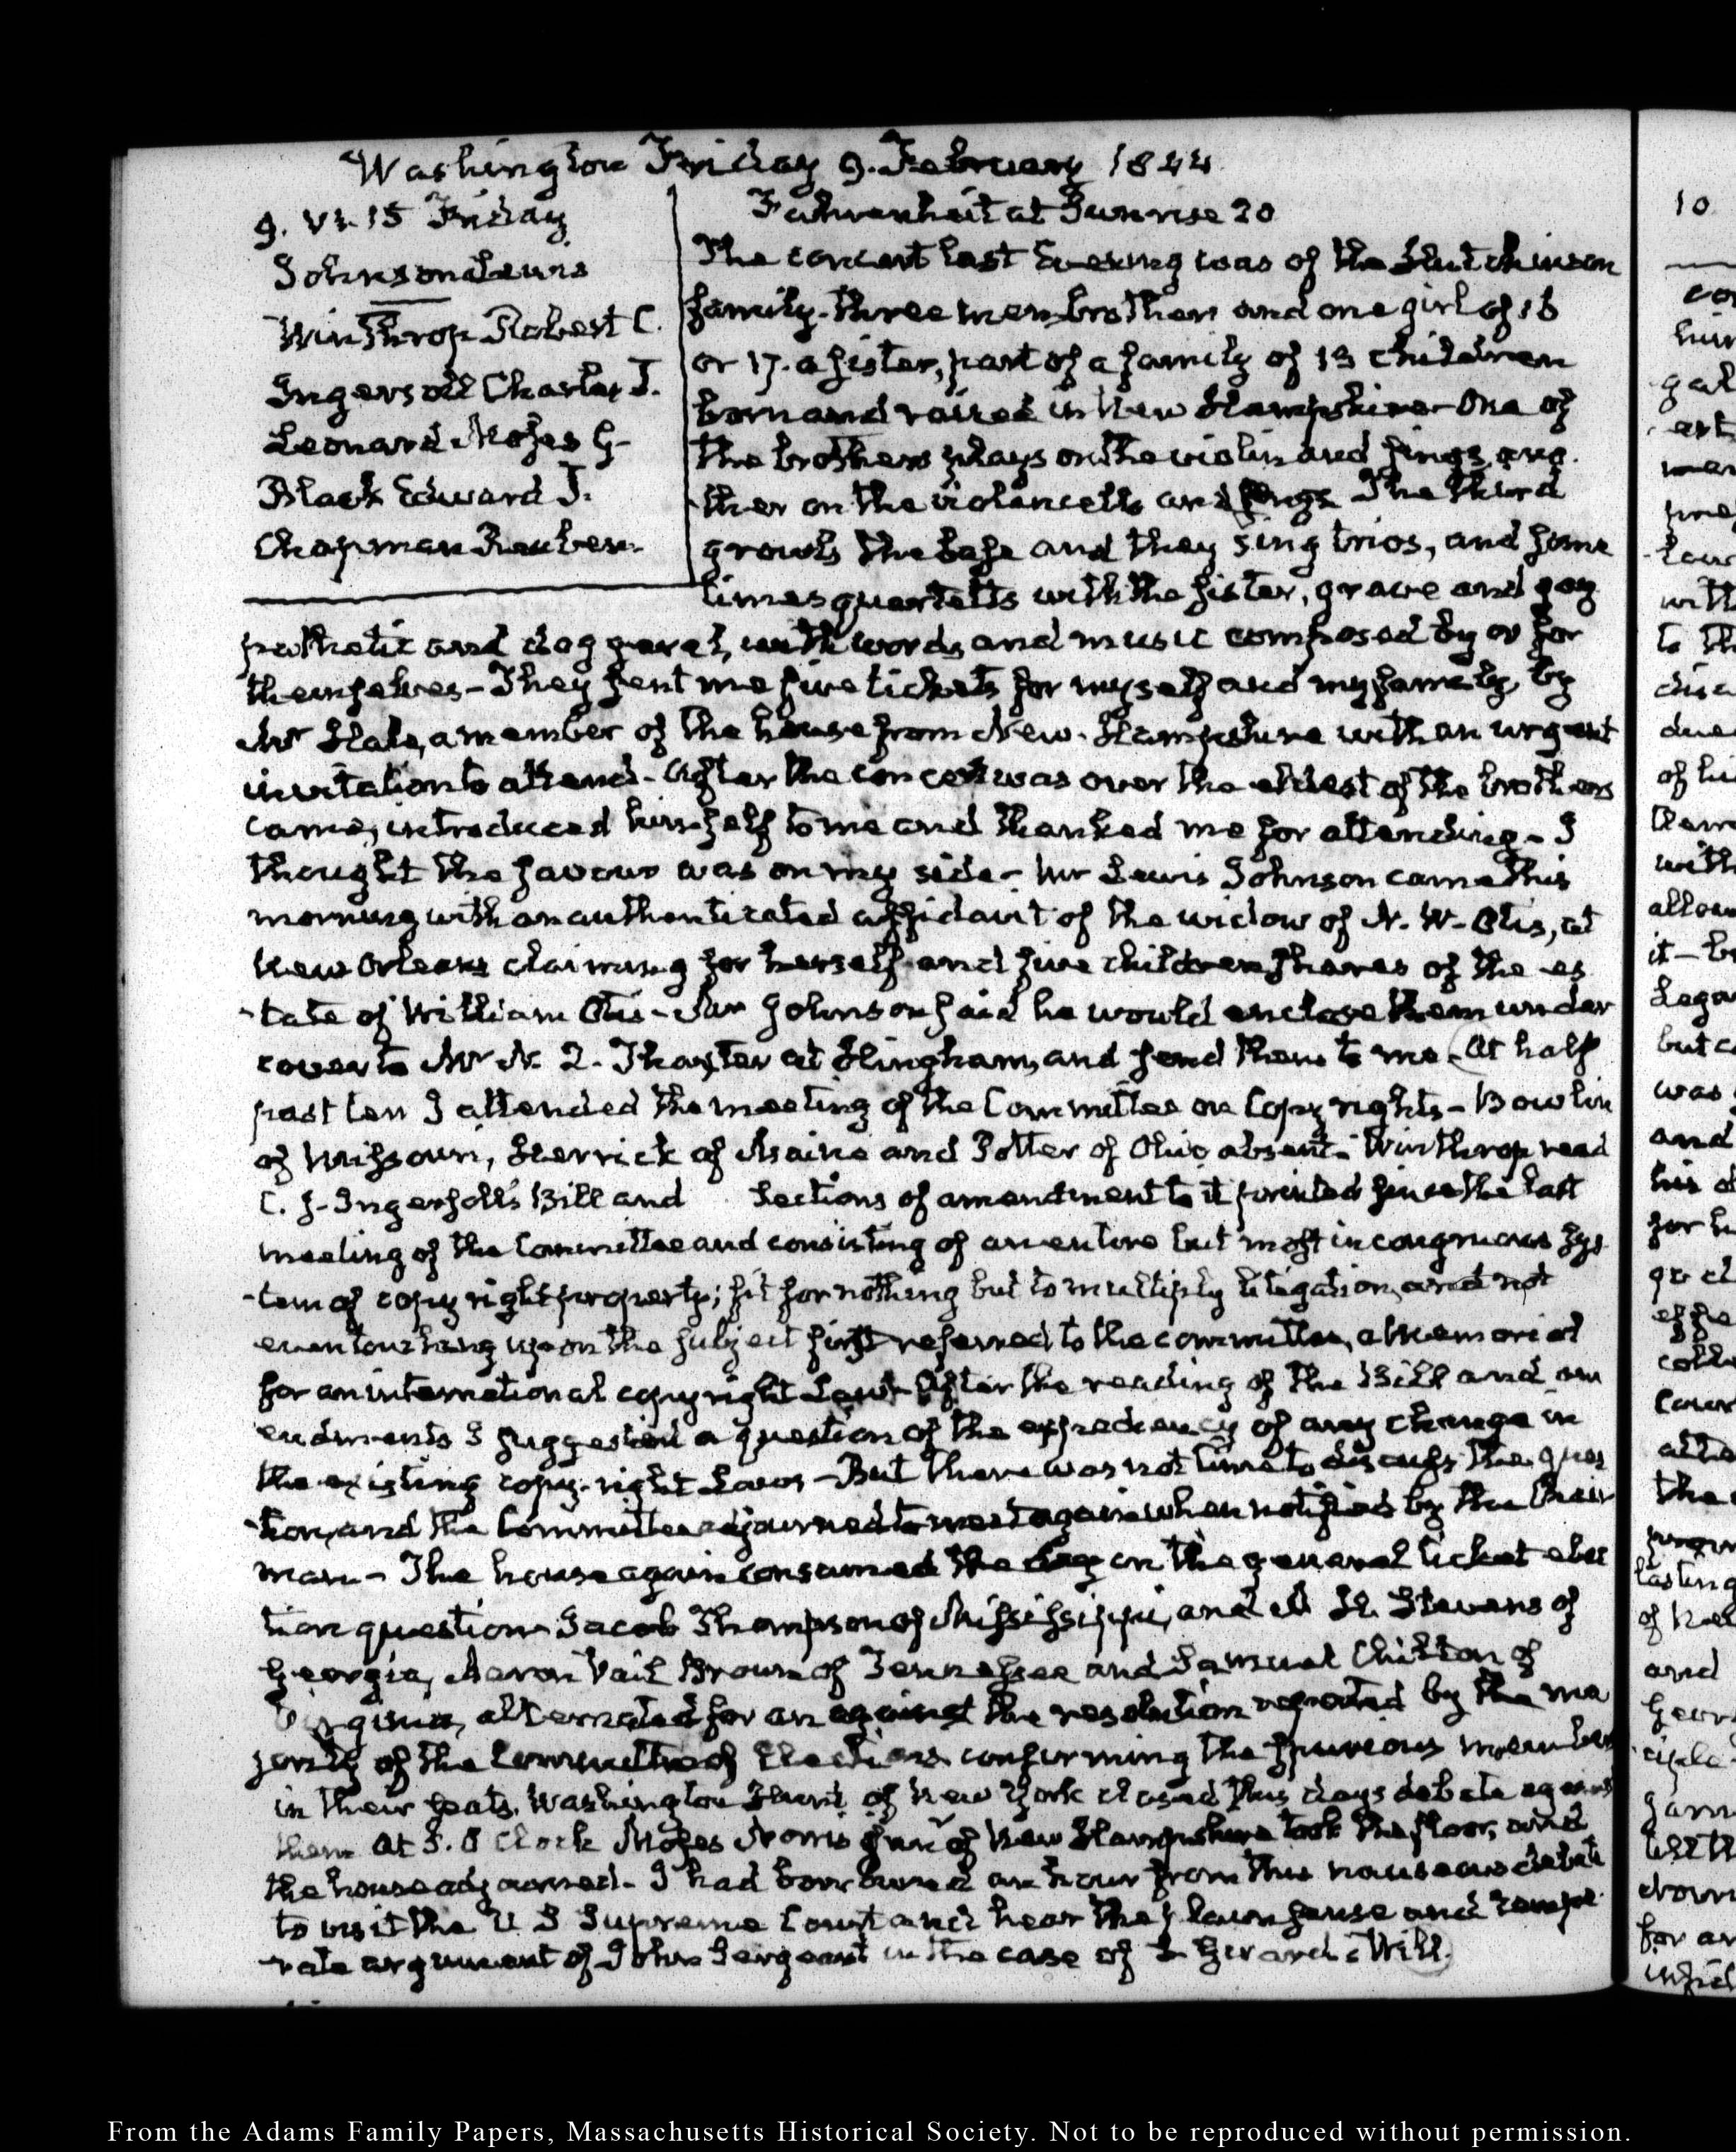 Washington Friday 9. February 1844
9. VI. 15 Friday
Johnson Lewis
Winthrop Robert C.
Ingersoll Charles J.
Leonard Moses G-
Black Edward J.
Chapman Reuben.
Fahrenheit at Sunrise 20
The concert last Evening was of the Hutchinson
family. three men brothers and one girl of 16
or 17. a sister, part of a family of 13 children
born and raised in New Hampshire - One of
the brothers plays on the violin and sings, ano-
ther on the violancello and sings The third
growls the base and they sing trios, and some
times quartetts with the sister, grave and gay
pathetic and doggerel, with words and music composed by or for
themselves - They sent me five tickets for myself and my family, by
Mr Hale, a member of the house from New-Hampshire with an urgent
invitation to attend - After the concert was over the eldest of the brothers
came, introduced himself to me and thanked me for attending - I
thought the favour was on my side - Mr Lewis Johnson came this
morning with an authenticated affidavit of the widow of N. W. Otis, at
New Orleans claiming for herself and five children shares of the es
-tate of William Otis - Mr Johnson said he would enclose them under
cover to Mr N. Q. Thaxter at Hingham, and send them to me. At half
past ten I attended the meeting of the Committee on Copy rights - Bowlin
of Missouri, Herrick of Maine and Potter of Ohio absent - Winthrop read
C. J. Ingersoll's Bill and Sections of amendment to it printed since the last
meeting of the Committee and consisting of an entire but most incongruous sys
-tem of copy right property; fit for nothing but to multiply litigation, and not
even touching upon the subject first referred to the committee, a Memorial
for an international copy right Law - After the reading of the Bill and am
endments I suggested a question of the expediency of any change in
the existing copy-right Laws - But there was not time to discuss the ques
-tion, and the Committee adjourned to meet again when notified by the Chair
man - The house again consumed the day on the general ticket elec
tion question Jacob Thompson of Mississippi, and A H. Stevens of
Georgia, Aaron Vail Brown of Tennessee and Samuel Chilton of
Virginia, alternated for an against the resolution reported by the ma
jority of the Committee of Elections confirming the spurious members
in their seats. Washington Hunt of New York closed this days debate against
them At 3. O Clock Moses Norris junr of New Hampshire took the floor, and
the house adjourned - I had borrowed an hour from this nauseous debate
to visit the U S Supreme Court and hear the clause and tempe
-rate argument of John Sergeant in the case of S Girard's Will.
10
From the Adams Family Papers, Massachusetts Historical Society. Not to be reproduced without permission.